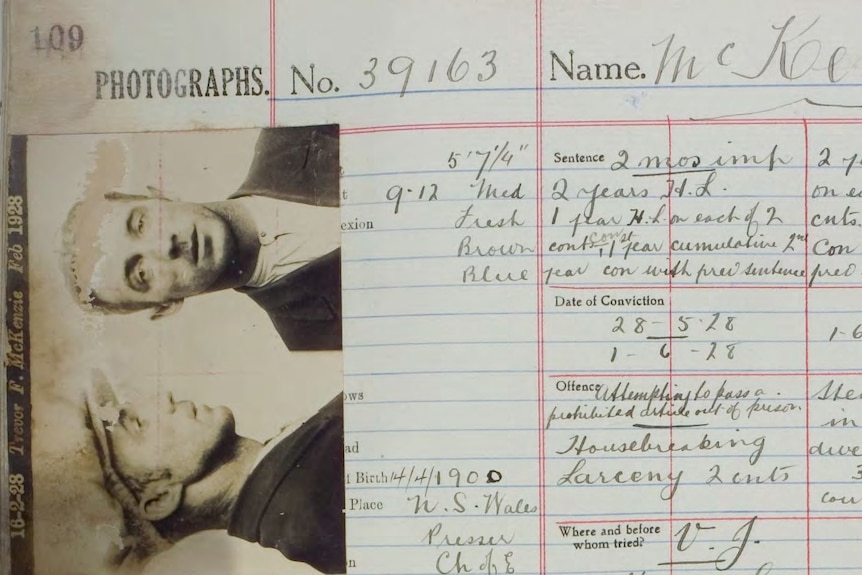 109
PHOTOGRAPHS. No. 39163 Name. McKe
16-2-28 Trevor F. McKenzie Feb 1928
5' 7¼"
9·12 Med
exion Fresh
Brown
Blue
ows
ad
Birth 14/4/1900
Place N.S. Wales
Presser
n Ch of E
Sentence 2 mos imp
2 years H.L.
1 year H.L. on each of 2
cnts const 1 year cumulative 2nd
year con with prev sentence
2 y
on e
cnts.
Con
pred
Date of Conviction
28-5-28
1-6-28
1-6
Offence Attempting to pass a
prohibited article out of prison
Housebreaking
Larceny 2 cnts
Stea
in
dwe
3
cou
Where and before
whom tried? V. J.